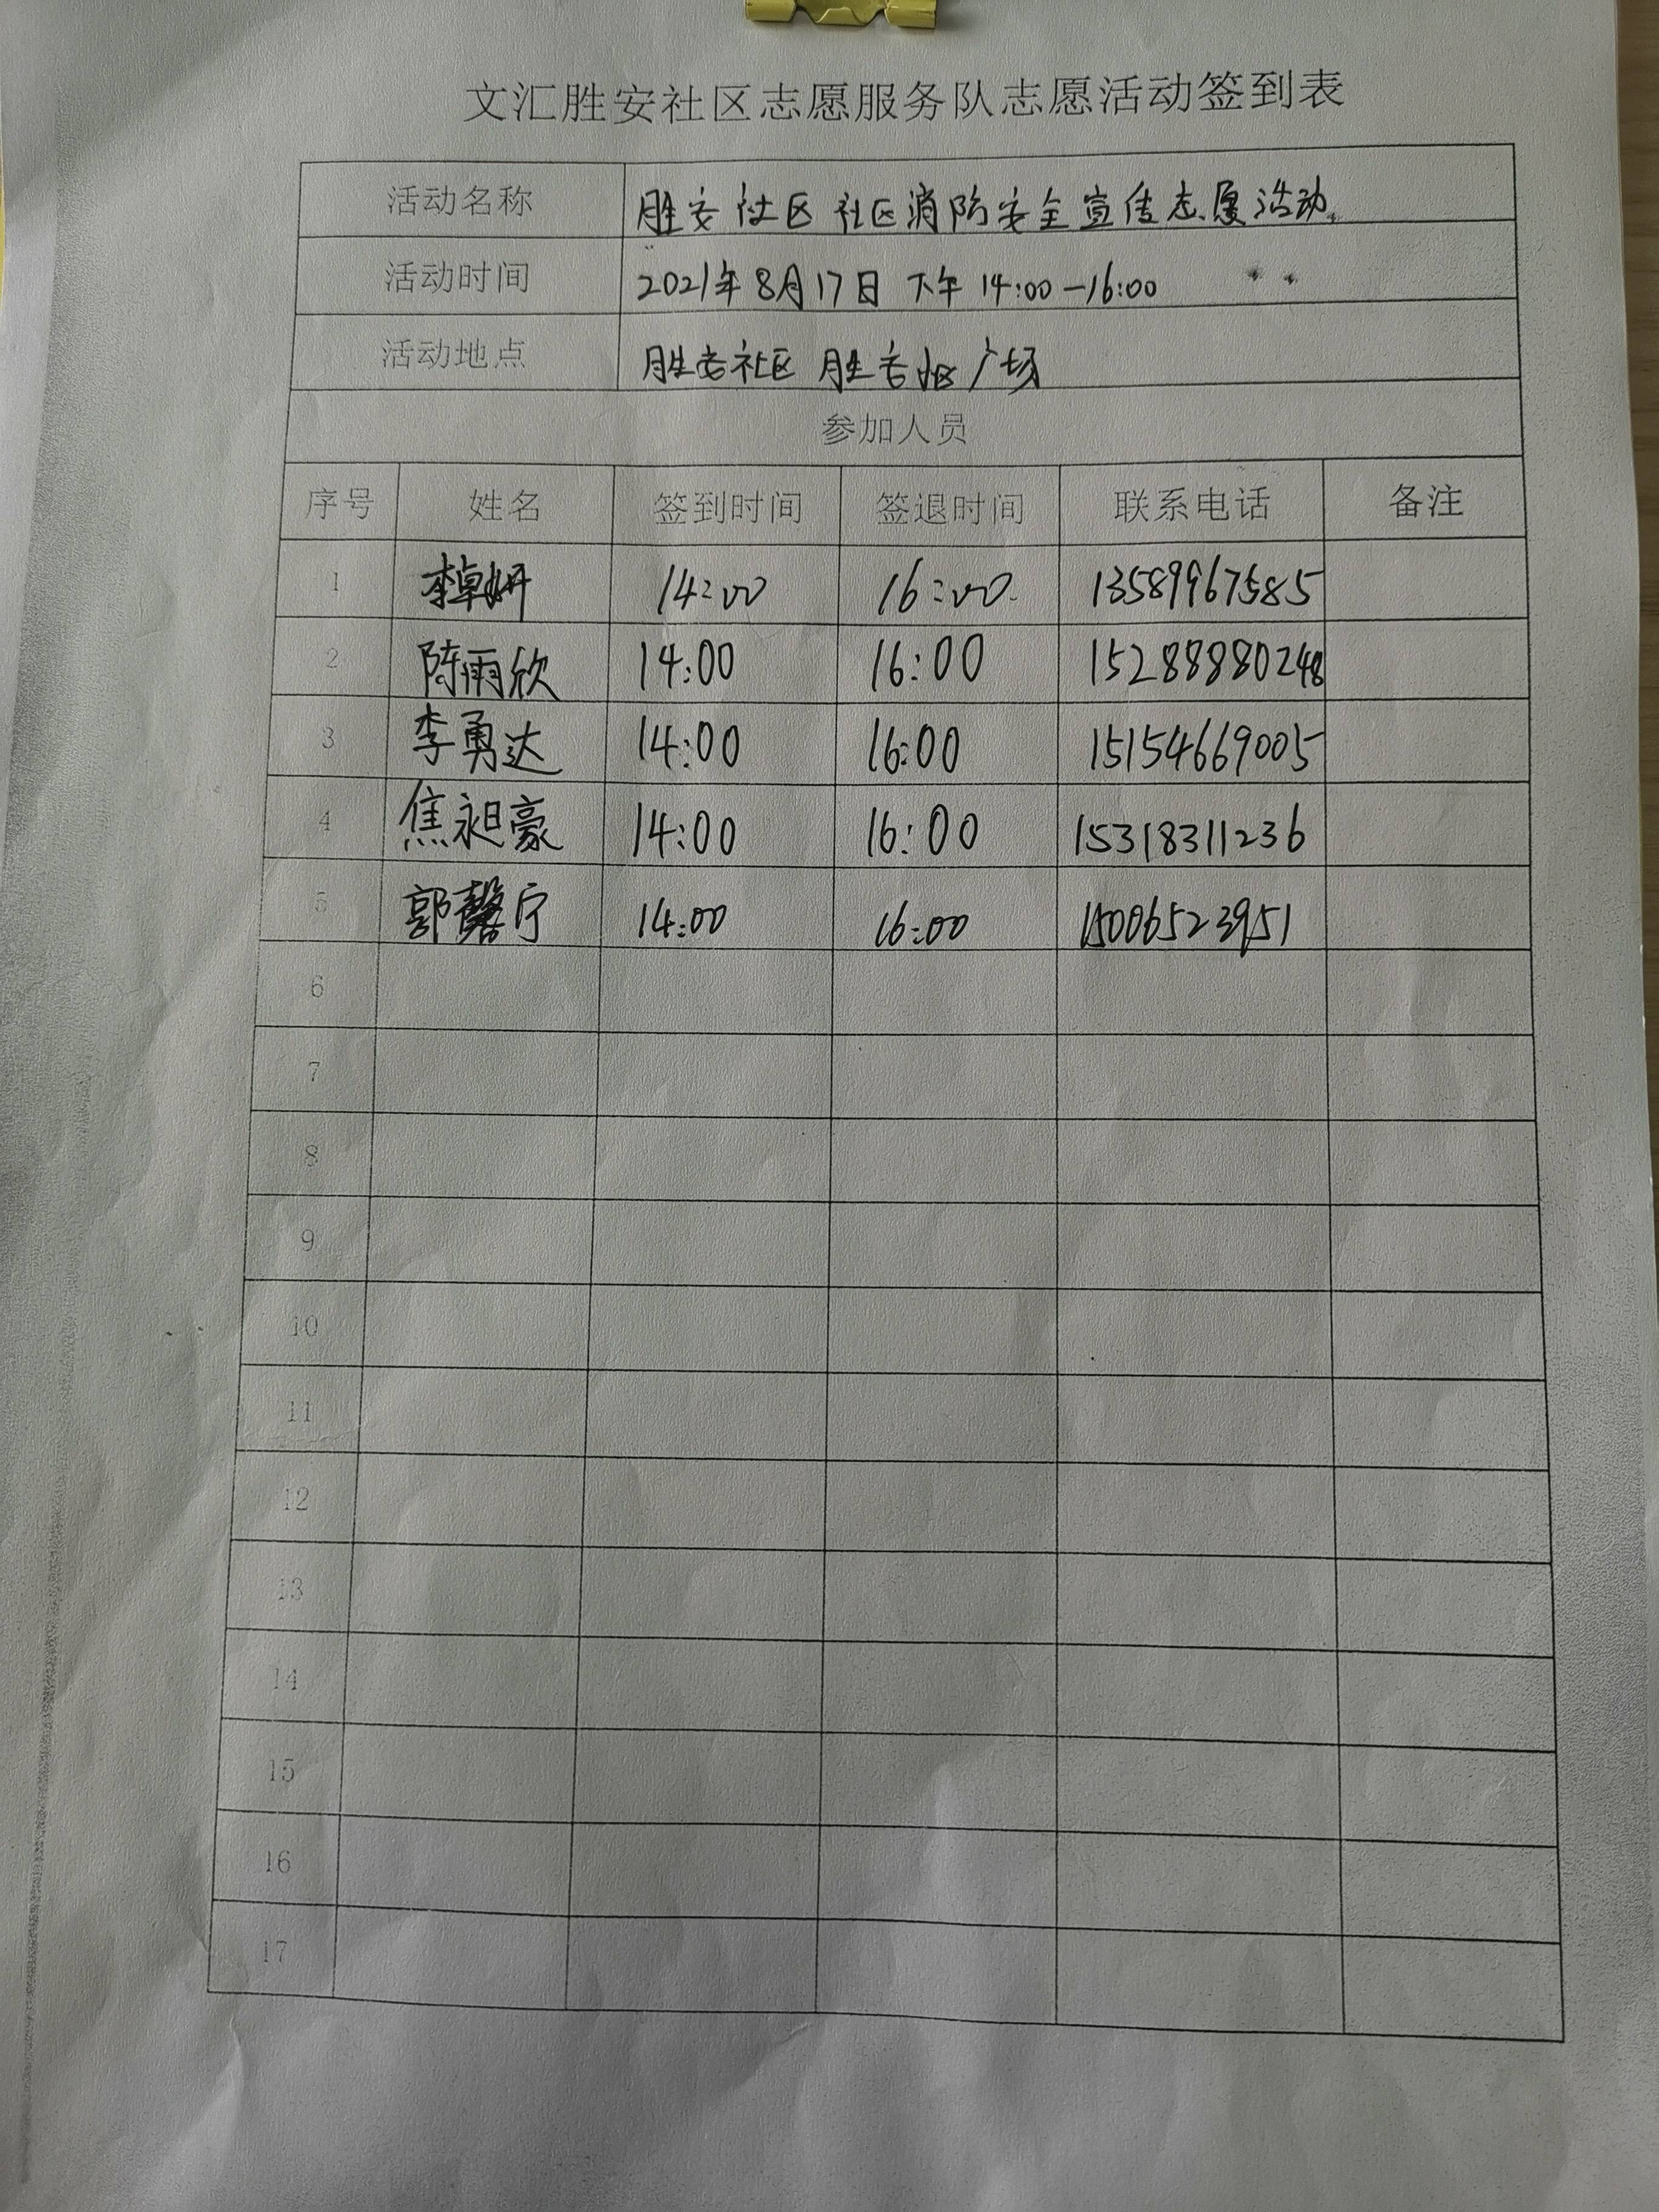 文汇胜安社区志愿服务队志愿活动签到表
活动名称 胜安社区 社区消防安全宣传志愿活动
活动时间 2021年8月17日 下午 14:00-16:00
活动地点 胜安社区 胜安社区广场
参加人员
序号 姓名 签到时间 签退时间 联系电话 备注
1 李卓妍 14:00 16:00 13589967585
2 陈雨欣 14:00 16:00 15288880248
3 李勇达 14:00 16:00 15154669005
4 焦昶豪 14:00 16:00 15318311236
5 郭馨宁 14:00 16:00 15006523951
6
7
8
9
10
11
12
13
14
15
16
17